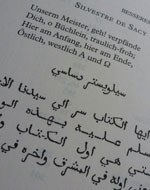 SILVESTRE DE SACY
Unserm Meister, geh! verpfände
Dich, o Büchlein, traulich-froh;
Hier am Anfang, hier am Ende,
Östlich, westlich, A und Ω
سيلوستر دساسي
ايها الكتاب سر الي سيدنا
سلم عليه بهذه
هي اول الكتاب
اوله في المشرق واخره في